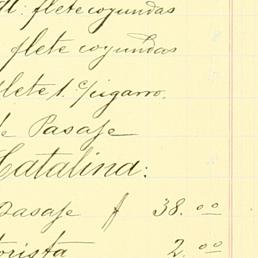 flete coyundas
flete coyundas
flete 1. c/cigarro.
de Pasaje
Catalina:
Pasaje $ 38.00
torista 2.00